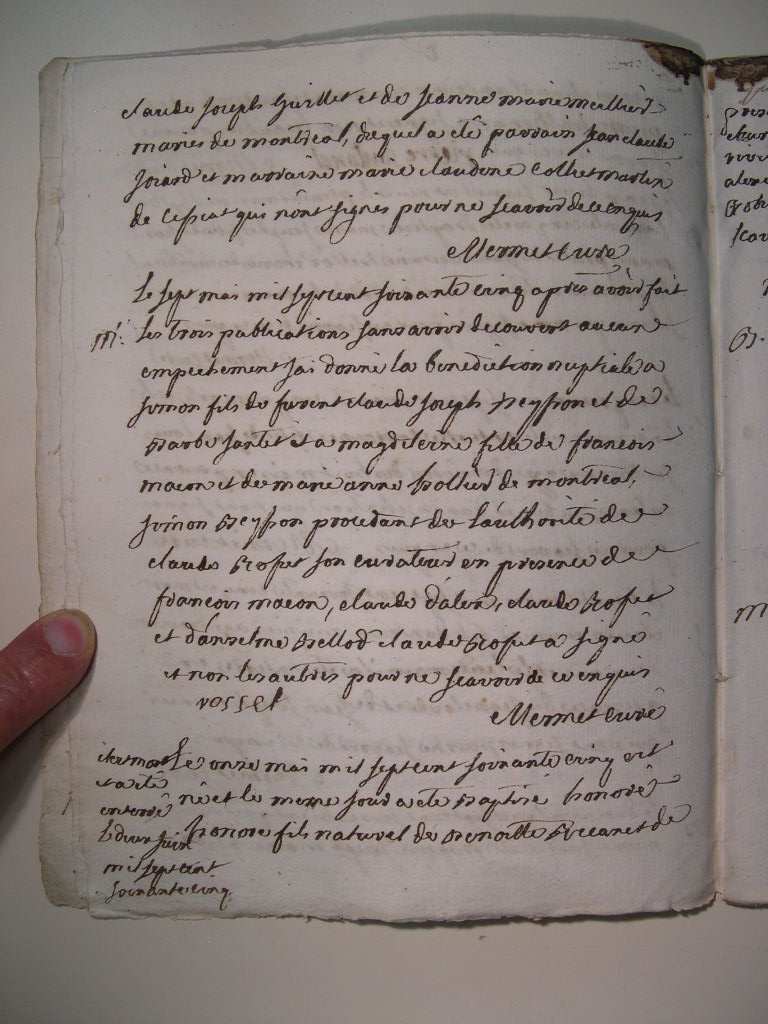 claude joseph Guillet et de jeanne marie meullier
mariés de montreal, duquel a eté parrain jean claude
joiard et marraine marie claudine Collet martin
de Cessiat qui n'ont signés pour ne scavoir de ce enquis
Mermet Curé
Le sept mai mil sept cent soixante cinq après avoir fait
m.
les trois publications sans avoir decouvert aucun
empechement jai donné la benediction nuptiale a
simon fils de furent claude joseph Reyffon et de
Barbe jantet et a magdeleine fille de francois
macon et de marie anne hollier de montreal,
simon Reyffon procedant de l'authorité de
claude Rosset son curateur en presence de
francois macon, claude dalex, claude Rosset
et d'anselme Bellod claude Rosset a signé
et non les autres pour ne scavoir de ce enquis
rossel
Mermet curé
Le onze mai mil sept cent soixante cinq est
né et le meme jour a eté Baptisé honoré
honoré fils naturel de Benoitte et de
il est mort
et a eté
enterré
le deux juin
mil sept cent
soixante cinq